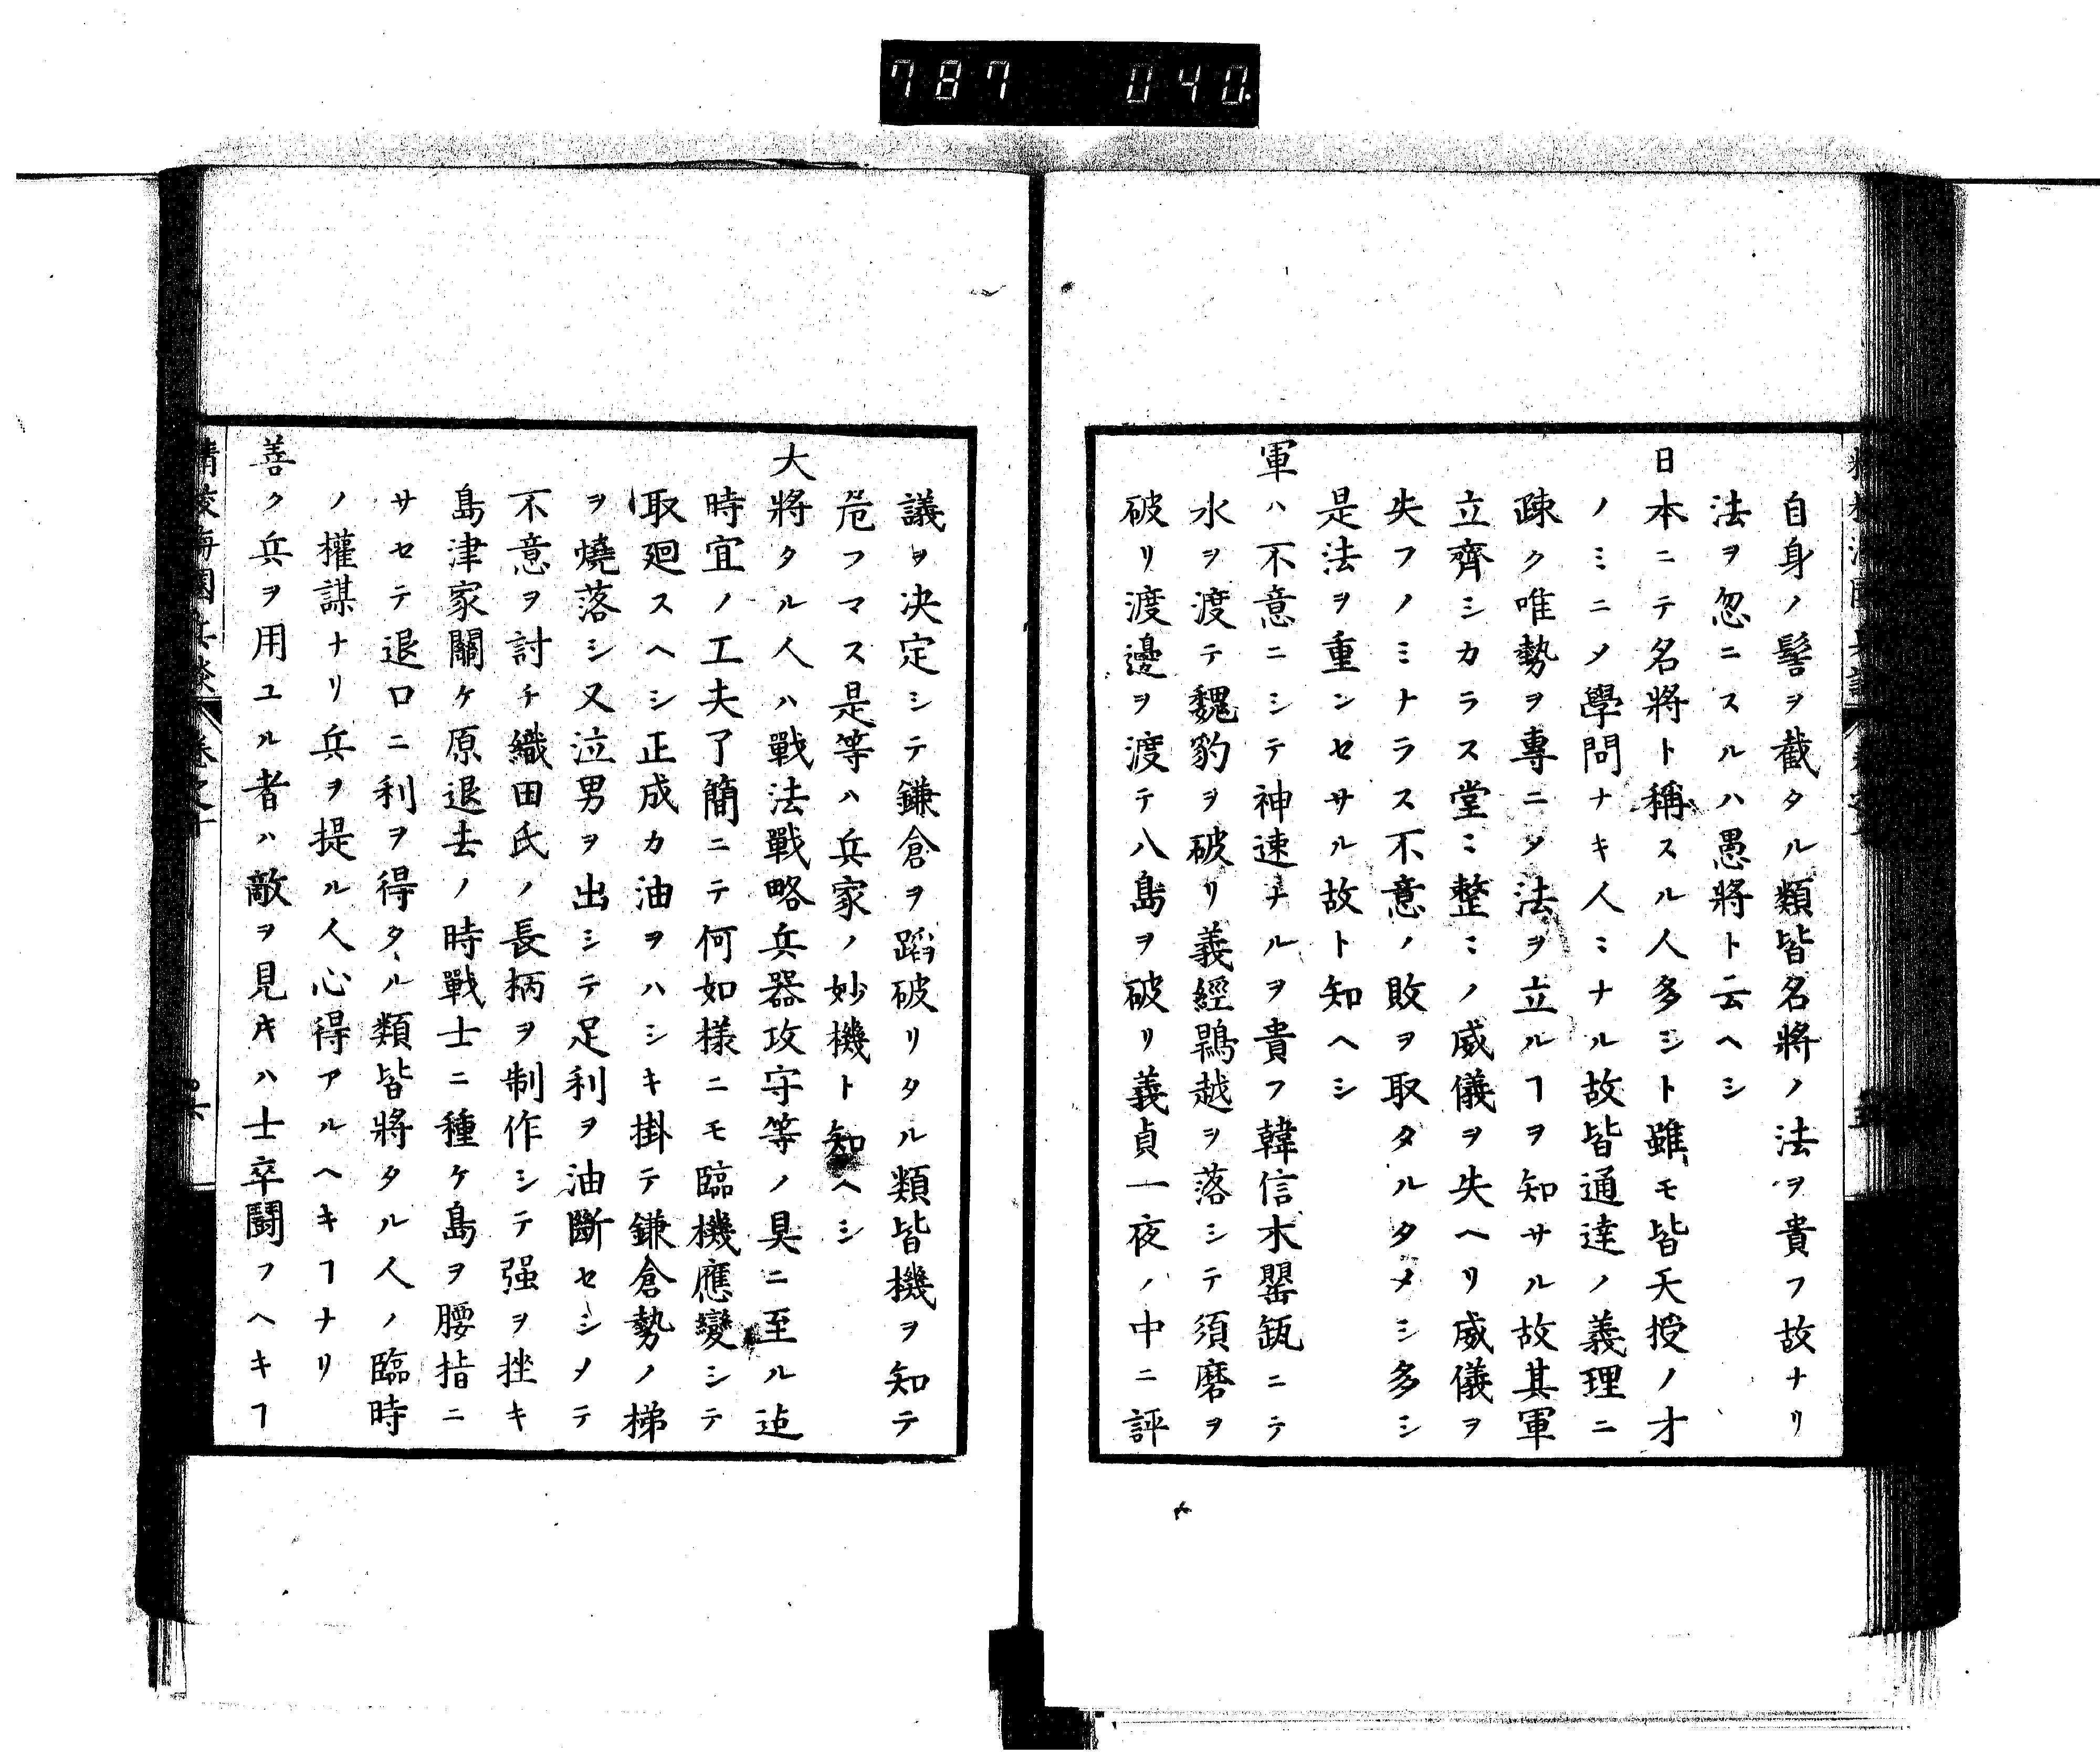 787 040.
自身ノ髻ヲ截タル類皆名將ノ法ヲ貴フ故ナリ
法ヲ忽ニスルハ愚將ト云ヘシ
日本ニテ名將ト稱スル人多シト雖モ皆天授ノ才
ノミニメ學問ナキ人ミナル故皆通達ノ義理ニ
疎ク唯勢ヲ專ニタ法ヲ立ルヿヲ知サル故其軍
立齊シカラス堂ミ整ミノ威儀ヲ失ヘリ威儀ヲ
失フノミナラス不意ノ敗ヲ取タルタメシ多シ
是法ヲ重ンセサル故ト知ヘシ
軍ハ不意ニシテ神速ナルヲ貴フ韓信木罌缻ニテ
水ヲ渡テ魏豹ヲ破リ義經鵯越ヲ落シテ須磨ヲ
破リ渡邊ヲ渡テ八島ヲ破リ義貞一夜ノ中ニ評
議ヲ决定シテ鎌倉ヲ蹈破リタル類皆機ヲ知テ
危フマス是等ハ兵家ノ妙機ト知ヘシ
大將タル人ハ戰法戰略兵器攻守等ノ具ニ至ル迠
時宜ノ工夫了簡ニテ何如樣ニモ臨機應變シテ
取廻スヘシ正成カ油ヲハシキ掛テ鎌倉勢ノ梯
ヲ燒落シ又泣男ヲ出シテ足利ヲ油斷セシメテ
不意ヲ討チ織田氏ノ長柄ヲ制作シテ强ヲ挫キ
島津家關ケ原退去ノ時戰士ニ種ケ島ヲ腰指ニ
サセテ退口ニ利ヲ得タル類皆將タル人ノ臨時
ノ權謀ナリ兵ヲ提ル人心得アルヘキヿナリ
善ク兵ヲ用ユル者ハ敵ヲ見キハ士卒鬪フヘキヿ
精校海國兵談 卷之十